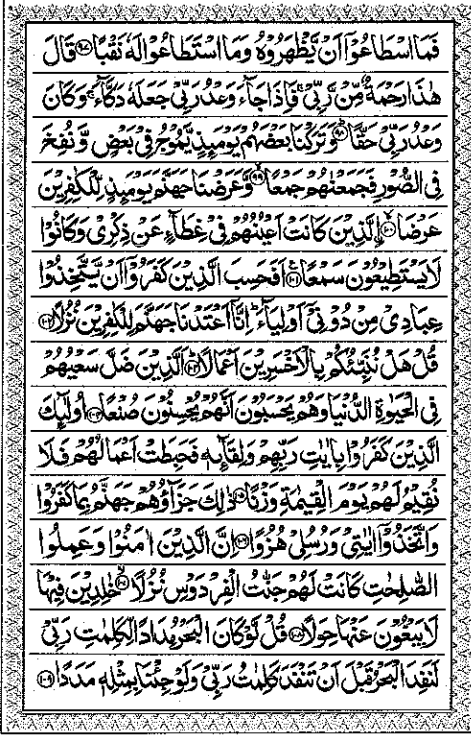 فَمَا اسْطَاعُوْٓا اَنْ يَّظْهَرُوْهُ وَمَا اسْتَطَاعُوْا لَهٗ نَقْبًا ۝۹۷ قَالَ
هٰذَا رَحْمَةٌ مِّنْ رَّبِّيْ ۚ فَاِذَا جَآءَ وَعْدُ رَبِّيْ جَعَلَهٗ دَكَّآءَ ۚ وَكَانَ
وَعْدُ رَبِّيْ حَقًّا ۝۹۸ وَتَرَكْنَا بَعْضَهُمْ يَوْمَىِٕذٍ يَّمُوْجُ فِيْ بَعْضٍ وَّنُفِخَ
فِي الصُّوْرِ فَجَمَعْنٰهُمْ جَمْعًا ۝۹۹ وَّعَرَضْنَا جَهَنَّمَ يَوْمَىِٕذٍ لِّلْكٰفِرِيْنَ
عَرْضًا ۝۱۰۰ الَّذِيْنَ كَانَتْ اَعْيُنُهُمْ فِيْ غِطَآءٍ عَنْ ذِكْرِيْ وَكَانُوْا
لَا يَسْتَطِيْعُوْنَ سَمْعًا ۝۱۰۱ اَفَحَسِبَ الَّذِيْنَ كَفَرُوْٓا اَنْ يَّتَّخِذُوْا
عِبَادِيْ مِنْ دُوْنِيْٓ اَوْلِيَآءَ ۭ اِنَّآ اَعْتَدْنَا جَهَنَّمَ لِلْكٰفِرِيْنَ نُزُلًا ۝۱۰۲
قُلْ هَلْ نُنَبِّئُكُمْ بِالْاَخْسَرِيْنَ اَعْمَالًا ۝۱۰۳ اَلَّذِيْنَ ضَلَّ سَعْيُهُمْ
فِي الْحَيٰوةِ الدُّنْيَا وَهُمْ يَحْسَبُوْنَ اَنَّهُمْ يُحْسِنُوْنَ صُنْعًا ۝۱۰۴ اُولٰٓىِٕكَ
الَّذِيْنَ كَفَرُوْا بِاٰيٰتِ رَبِّهِمْ وَلِقَآىِٕهٖ فَحَبِطَتْ اَعْمَالُهُمْ فَلَا
نُقِيْمُ لَهُمْ يَوْمَ الْقِيٰمَةِ وَزْنًا ۝۱۰۵ ذٰلِكَ جَزَآؤُهُمْ جَهَنَّمُ بِمَا كَفَرُوْا
وَاتَّخَذُوْٓا اٰيٰتِيْ وَرُسُلِيْ هُزُوًا ۝۱۰۶ اِنَّ الَّذِيْنَ اٰمَنُوْا وَعَمِلُوا
الصّٰلِحٰتِ كَانَتْ لَهُمْ جَنّٰتُ الْفِرْدَوْسِ نُزُلًا ۝۱۰۷ خٰلِدِيْنَ فِيْهَا
لَا يَبْغُوْنَ عَنْهَا حِوَلًا ۝۱۰۸ قُلْ لَّوْ كَانَ الْبَحْرُ مِدَادًا لِّكَلِمٰتِ رَبِّيْ
لَنَفِدَ الْبَحْرُ قَبْلَ اَنْ تَنْفَدَ كَلِمٰتُ رَبِّيْ وَلَوْ جِئْنَا بِمِثْلِهٖ مَدَدًا ۝۱۰۹